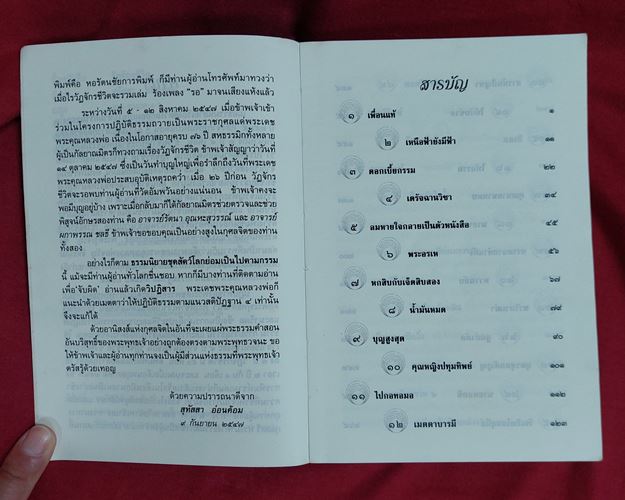 พิมพ์คือ หอรัตนชัยการพิมพ์ ก็มีท่านผู้อ่านโทรศัพท์มาทวงว่า
เมื่อไรวัฏจักรชีวิตจะรวมเล่ม ร้องเพลง "รอ" มาจนเสียงแห้งแล้ว
ระหว่างวันที่ ๕ - ๑๒ สิงหาคม ๒๕๔๗ เมื่อข้าพเจ้าเข้า
ร่วมในโครงการปฏิบัติธรรมถวายเป็นพระราชกุศลแด่พระเดช
พระคุณหลวงพ่อ เนื่องในโอกาสอายุครบ ๗๖ ปี สหธรรมิกทั้งหลาย
ผู้เป็นกัลยาณมิตรก็ทวงถามเรื่องวัฏจักรชีวิต ข้าพเจ้าสัญญาว่าวันที่
๑๔ ตุลาคม ๒๕๔๗ ซึ่งเป็นวันทำบุญใหญ่เพื่อรำลึกถึงวันที่พระเดช
พระคุณหลวงพ่อประสบอุบัติเหตุรถคว่ำ เมื่อ ๒๖ ปีก่อน วัฏจักร
ชีวิตจะรอบท่านผู้อ่านที่วัดอัมพวันอย่างแน่นอน ข้าพเจ้าคงจะ
พอมีบุญอยู่บ้าง เพราะเมื่อกลับมาก็ได้กัลยาณมิตรช่วยตรวจและช่วย
พิสูจน์อักษรสองท่าน คือ อาจารย์รัตนา อุณหะสุวรรณ์ และ อาจารย์
ผกาพรรณ ชลธี ข้าพเจ้าขอขอบคุณเป็นอย่างสูงในกุศลจิตของท่าน
ทั้งสอง
อย่างไรก็ตาม ธรรมนิยายชุดสัตว์โลกย่อมเป็นไปตามกรรม
นี้ แม้จะมีท่านผู้อ่านทั่วโลกชื่นชอบ หากก็มีบางท่านที่ติดตามอ่าน
เพื่อ'จับผิด' อ่านแล้วเกิดวิปฏิสาร พระเดชพระคุณหลวงพ่อก็
แนะนำด้วยเมตตาว่าให้ปฏิบัติธรรมตามแนวสติปัฏฐาน ๔ เท่านั้น
จึงจะแก้ได้
ด้วยอานิสงส์แห่งกุศลจิตในอันที่จะเผยแผ่พระธรรมคำสอน
อันบริสุทธิ์ของพระพุทธเจ้าอย่างถูกต้องตรงตามพระพุทธวจนะ ขอ
ให้ข้าพเจ้าและผู้อ่านทุกท่านจงเป็นผู้มีส่วนแห่งธรรมที่พระพุทธเจ้า
ตรัสรู้ด้วยเทอญ
ด้วยความปรารถนาดีจาก
สุทัสสา อ่อนค้อม
๙ กันยายน ๒๕๔๗
สารบัญ
๑ เพื่อนแท้ ๑
๒ เหนือฟ้ายังมีฟ้า ๑๑
๓ ดอกเบี้ยกรรม ๒๒
๔ เดรัจฉานวิชา ๓๔
๕ ลมหายใจกลายเป็นตัวหนังสือ ๔๕
๖ พระอรเห ๕๖
๗ หกสิบกับเจ็ดสิบสอง ๖๗
๘ น้ำมันหมด ๗๙
๙ บุญสูงสุด ๙๐
๑๐ คุณหญิงปทุมทิพย์ ๑๐๑
๑๑ ไปกอทอมอ ๑๑๒
๑๒ เมตตาบารมี ๑๒๓